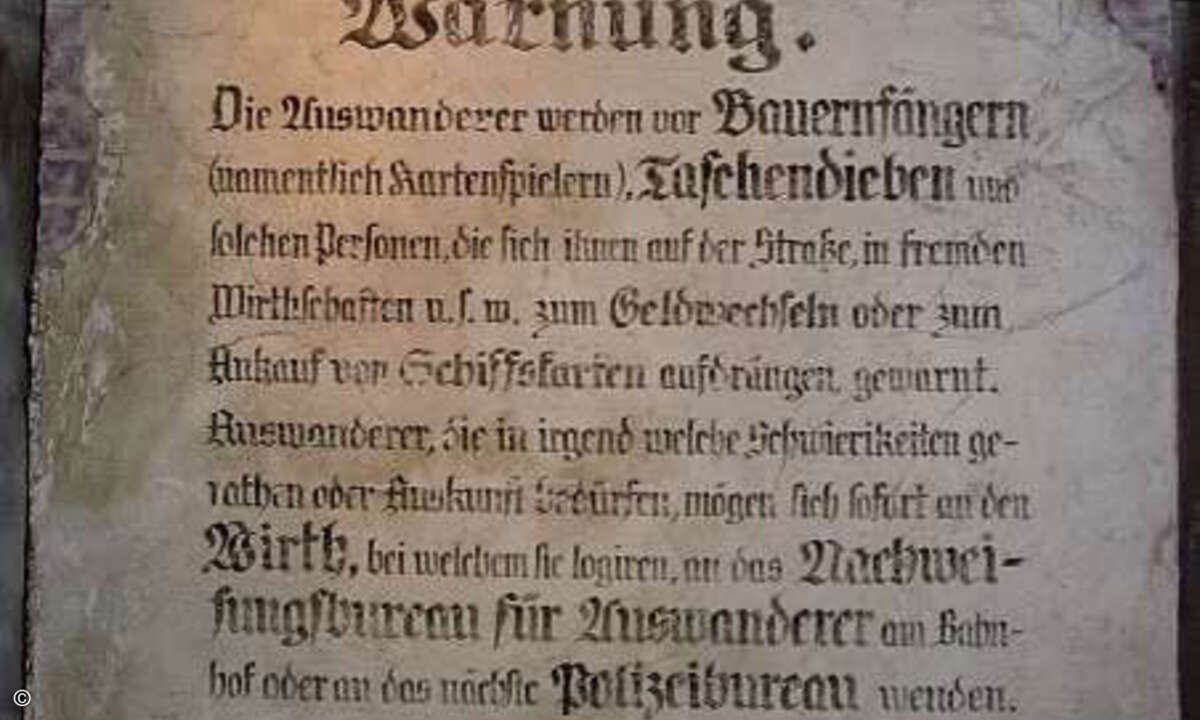 Warnung.
Die Auswanderer werden vor Bauernfängern
(namentlich Kartenspielern), Taschendieben und
solchen Personen, die sich ihnen auf der Straße, in fremden
Wirthschaften u. s. w. zum Geldwechseln oder zum
Ankauf von Schiffskarten aufdrängen, gewarnt.
Auswanderer, die in irgend welche Schwierikeiten ge-
rathen oder Auskunft bedürfen, mögen sich sofort an den
Wirth, bei welchem sie logiren, an das Nachwei-
sungsbureau für Auswanderer am Bahn-
hof oder an das nächste Polizeibureau wenden.
©